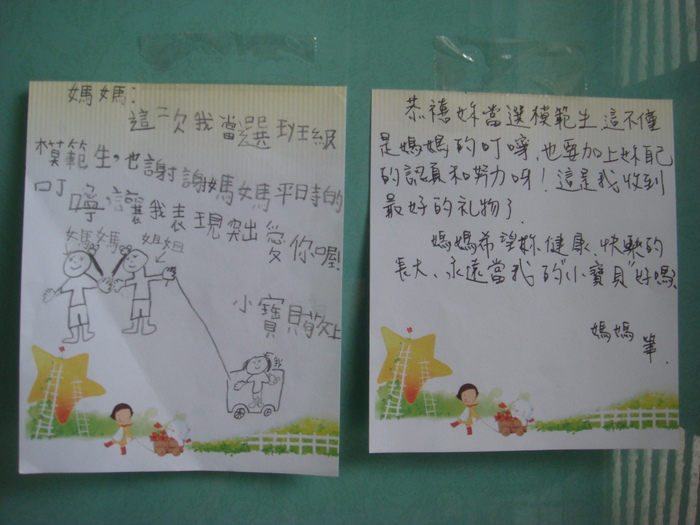 媽媽：
這一次我當選班級
模範生，也謝謝媽媽平時的
叮嚀，讓我表現突出愛你喔!
媽媽 姐姐
我
小寶貝敬上
恭禧妳當選模範生，這不僅
是媽媽的叮嚀，也要加上妳自己
的認真和努力呀！這是我收到
最好的礼物了.
媽媽希望妳健康、快樂的
長大、永遠當我的"小寶貝"好嗎
媽媽
筆.